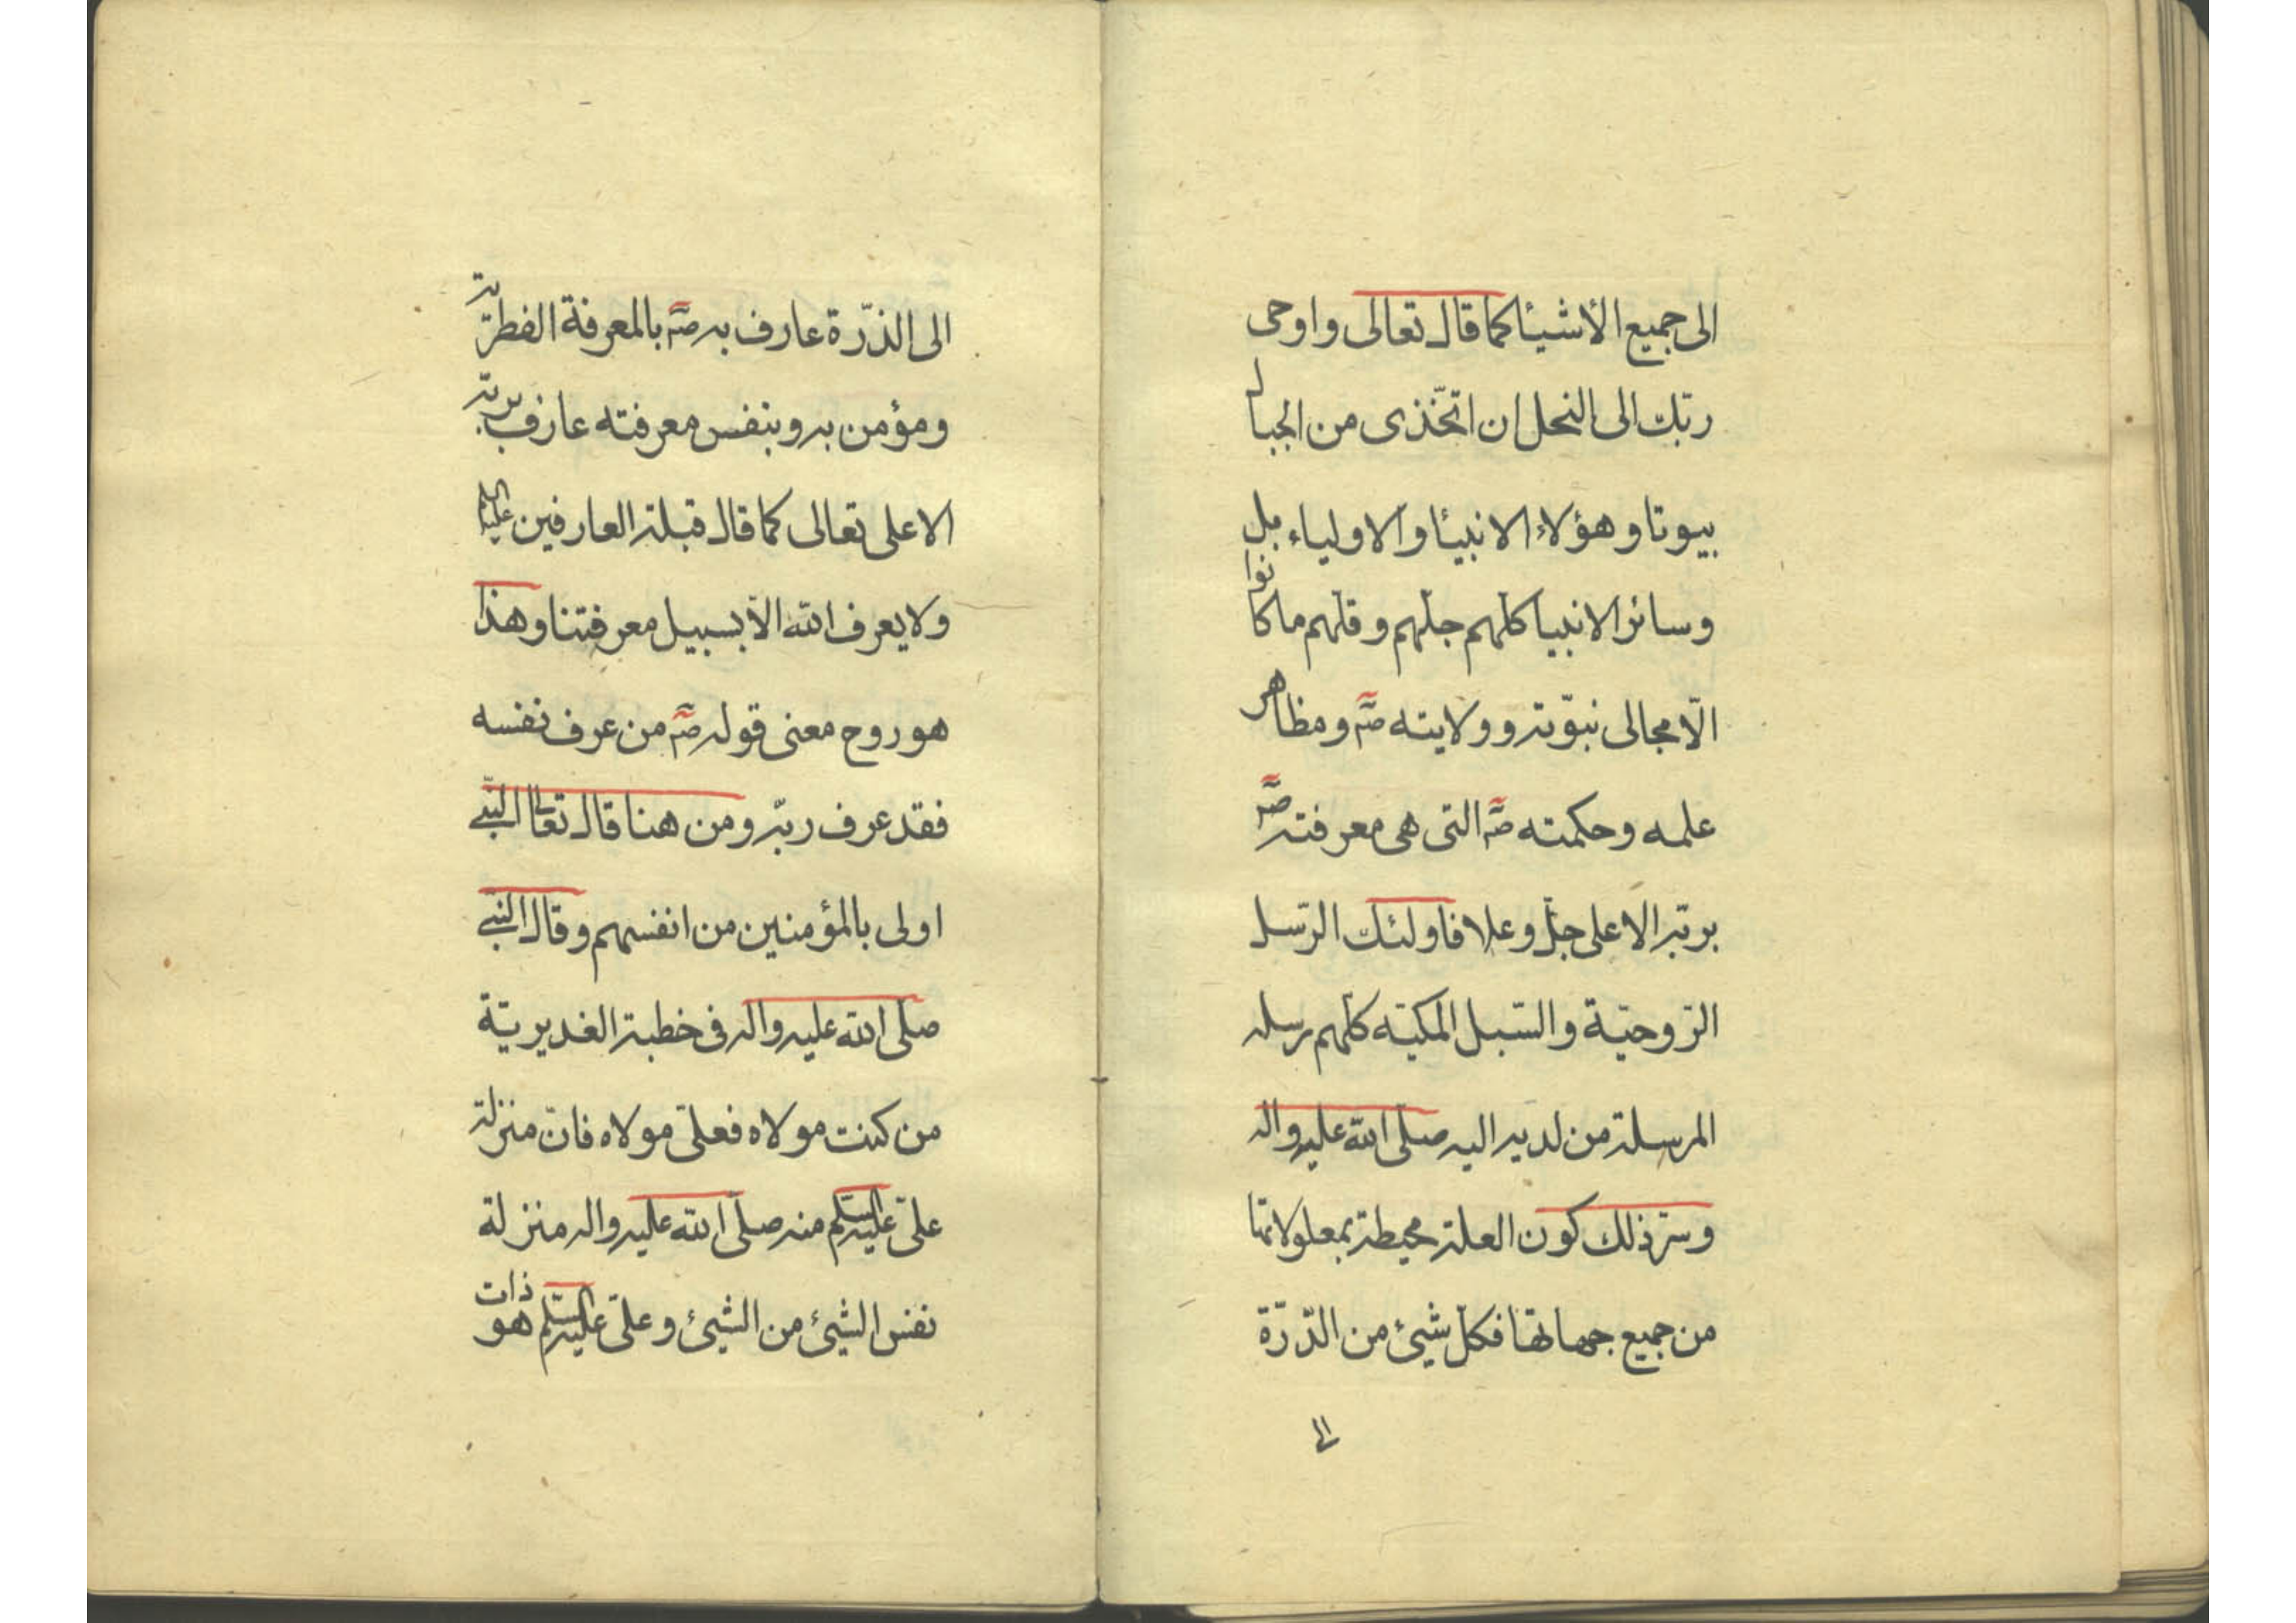 الى جميع الأشيئا كما قال تعالى واوحى
ربّك الى النحل ان اتّخذى من الجبال
بيوتا وهؤلاء الانبيئا والاولياء بل
وسائر الانبيا كلّهم جلّهم وقلّهم ما كانوا
الّا مجالى نبوّته وولايته صؐ ومظاهر
علمه وحكمته صؐ التى هى معرفته صؐ
بربّه الاعلى جلّ وعلا فاولئك الرّسل
الرّوحيّة والسّبل المكيّه كلّهم رسله
المرسلة من لديه اليه صلّى الله عليه واله
وسرّ ذلك كون العلة محيطة بمعلولاتها
من جميع جهاتها فكلّ شيئ من الدّرّة
الى
الى الذّرّة عارف به صؐ بالمعرفة الفطريّة
ومؤمن به وبنفس معرفته عارف بربّه
الاعلى تعالى كما قال قبلة العارفين عليه السلم
ولا يعرف الله الّا بسبيل معرفتنا وهذا
هو روح معنى قوله صؐ من عرف نفسه
فقد عرف ربّه ومن هنا قال تعالى النبّى
اولى بالمؤمنين من انفسهم وقال النبّى
صلّى الله عليه واله فى خطبة الغديريّة
من كنت مولاه فعلىّ مولاه فانّ منزلة
علىّ عليه السّلم منه صلّى الله عليه واله منزلة
نفس الشيئ من الشيئ وعلىّ عليه السّلم هو ذات